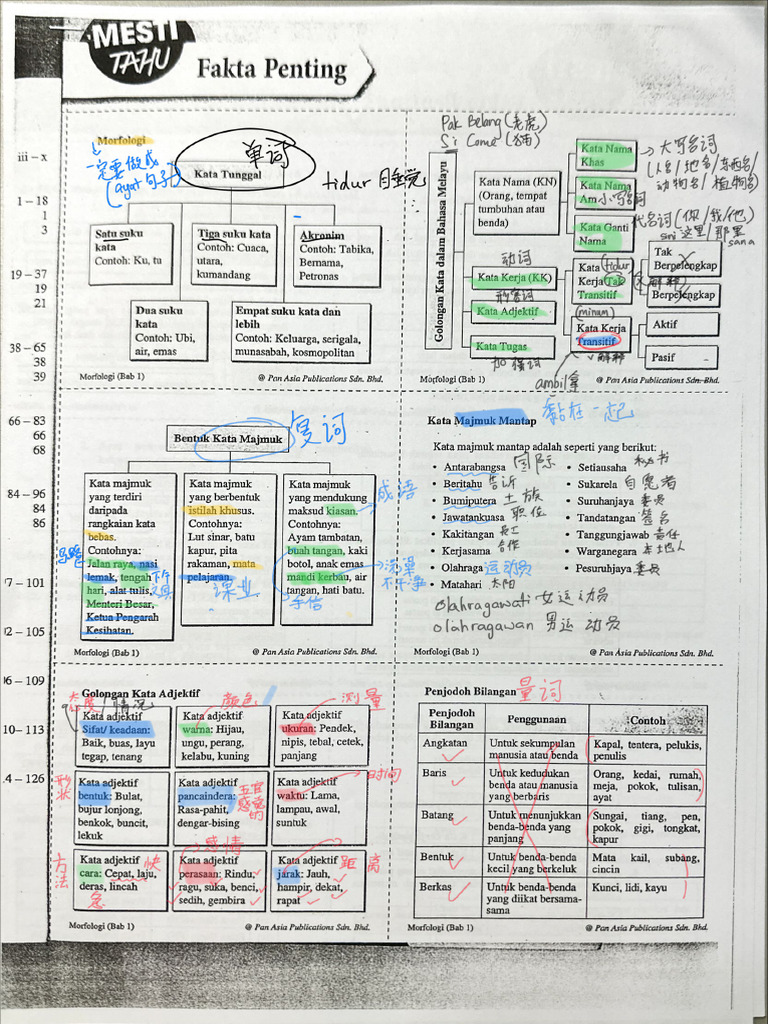 MESTI
TAHU
Fakta Penting
iii – x
1 – 18
1
3
19 – 37
19
21
38 – 65
38
39
66 – 83
66
68
84 – 96
84
86
7 – 101
02 – 105
06 – 109
10 – 113
4 – 126
Morfologi
一定要做成
(ayat 句子)
单词
Kata Tunggal
tidur 睡觉
Satu suku
kata
Contoh: Ku, tu
Tiga suku kata
Contoh: Cuaca,
utara,
kumandang
Akronim
Contoh: Tabika,
Bernama,
Petronas
Dua suku
kata
Contoh: Ubi,
air, emas
Empat suku kata dan
lebih
Contoh: Keluarga, serigala,
munasabah, kosmopolitan
Morfologi (Bab 1)
@ Pan Asia Publications Sdn. Bhd.
Pak Belang (老虎)
Si Comel (猫)
Golongan Kata dalam Bahasa Melayu
Kata Nama (KN)
(Orang, tempat
tumbuhan atau
benda)
Kata Nama
Khas
大写名词
(人名/地名/东西名/
动物名/植物名)
Kata Nama
Am
小写名词
Kata Ganti
Nama
代名词 (你/我/他)
sini 这里/那里
sana
动词
Kata Kerja (KK)
形容词
Kata Adjektif
Kata Tugas
加强词
Kata tidur
Kerja Tak
Transitif
Tak
Berpelengkap
Berpelengkap
(minum)
Kata Kerja
Transitif
Aktif
Pasif
ambil 拿
Morfologi (Bab 1)
@ Pan Asia Publications Sdn. Bhd.
Bentuk Kata Majmuk
复词
Kata majmuk
yang terdiri
daripada
rangkaian kata
bebas.
Contohnya:
Jalan raya, nasi
lemak, tengah
hari, alat tulis,
Menteri Besar,
Ketua Pengarah
Kesihatan.
马路
文具
Kata majmuk
yang berbentuk
istilah khusus.
Contohnya:
Lut sinar, batu
kapur, pita
rakaman, mata
pelajaran.
课业
Kata majmuk
yang mendukung
maksud kiasan.
Contohnya:
Ayam tambatan,
buah tangan, kaki
botol, anak emas
mandi kerbau, air
tangan, hati batu.
成语
洗澡
不干净
手信
Morfologi (Bab 1)
@ Pan Asia Publications Sdn. Bhd.
Kata Majmuk Mantap 黏在一起
Kata majmuk mantap adalah seperti yang berikut:
• Antarabangsa 国际
• Beritahu 告诉
• Bumiputera 土族
• Jawatankuasa 职位
• Kakitangan 员工
• Kerjasama 合作
• Olahraga 运动员
• Matahari 太阳
• Setiausaha 秘书
• Sukarela 自愿者
• Suruhanjaya 委员
• Tandatangan 签名
• Tanggungjawab 责任
• Warganegara 本地人
• Pesuruhjaya 委员
olahragawati 女运动员
olahragawan 男运动员
Morfologi (Bab 1)
@ Pan Asia Publications Sdn. Bhd.
Golongan Kata Adjektif
态度/情况
Kata adjektif
Sifat/ keadaan:
Baik, buas, layu
tegap, tenang
颜色
Kata adjektif
warna: Hijau,
ungu, perang,
kelabu, kuning
测量
Kata adjektif
ukuran: Pendek,
nipis, tebal, cetek,
panjang
形状
Kata adjektif
bentuk: Bulat,
bujur lonjong,
benkok, buncit,
lekuk
Kata adjektif
pancaindera:
Rasa-pahit,
dengar-bising
五官
感觉的
时间
Kata adjektif
waktu: Lama,
lampau, awal,
suntuk
方法
Kata adjektif
cara: Cepat, laju,
deras, lincah
快
急
感情
Kata adjektif
perasaan: Rindu,
ragu, suka, benci,
sedih, gembira
Kata adjektif
jarak: Jauh,
hampir, dekat,
rapat
距离
Morfologi (Bab 1)
@ Pan Asia Publications Sdn. Bhd.
Penjodoh Bilangan 量词
Penjodoh
Bilangan
Penggunaan
Contoh
Angkatan
Untuk sekumpulan
manusia atau benda
Kapal, tentera, pelukis,
penulis
Baris
Untuk kedudukan
benda atau manusia
yang berbaris
Orang, kedai, rumah,
meja, pokok, tulisan,
ayat
Batang
Untuk menunjukkan
benda-benda yang
panjang
Sungai, tiang, pen,
pokok, gigi, tongkat,
kapur
Bentuk
Untuk benda-benda
kecil yang berkeluk
Mata kail, subang,
cincin
Berkas
Untuk benda-benda
yang diikat bersama-
sama
Kunci, lidi, kayu
Morfologi (Bab 1)
@ Pan Asia Publications Sdn. Bhd.